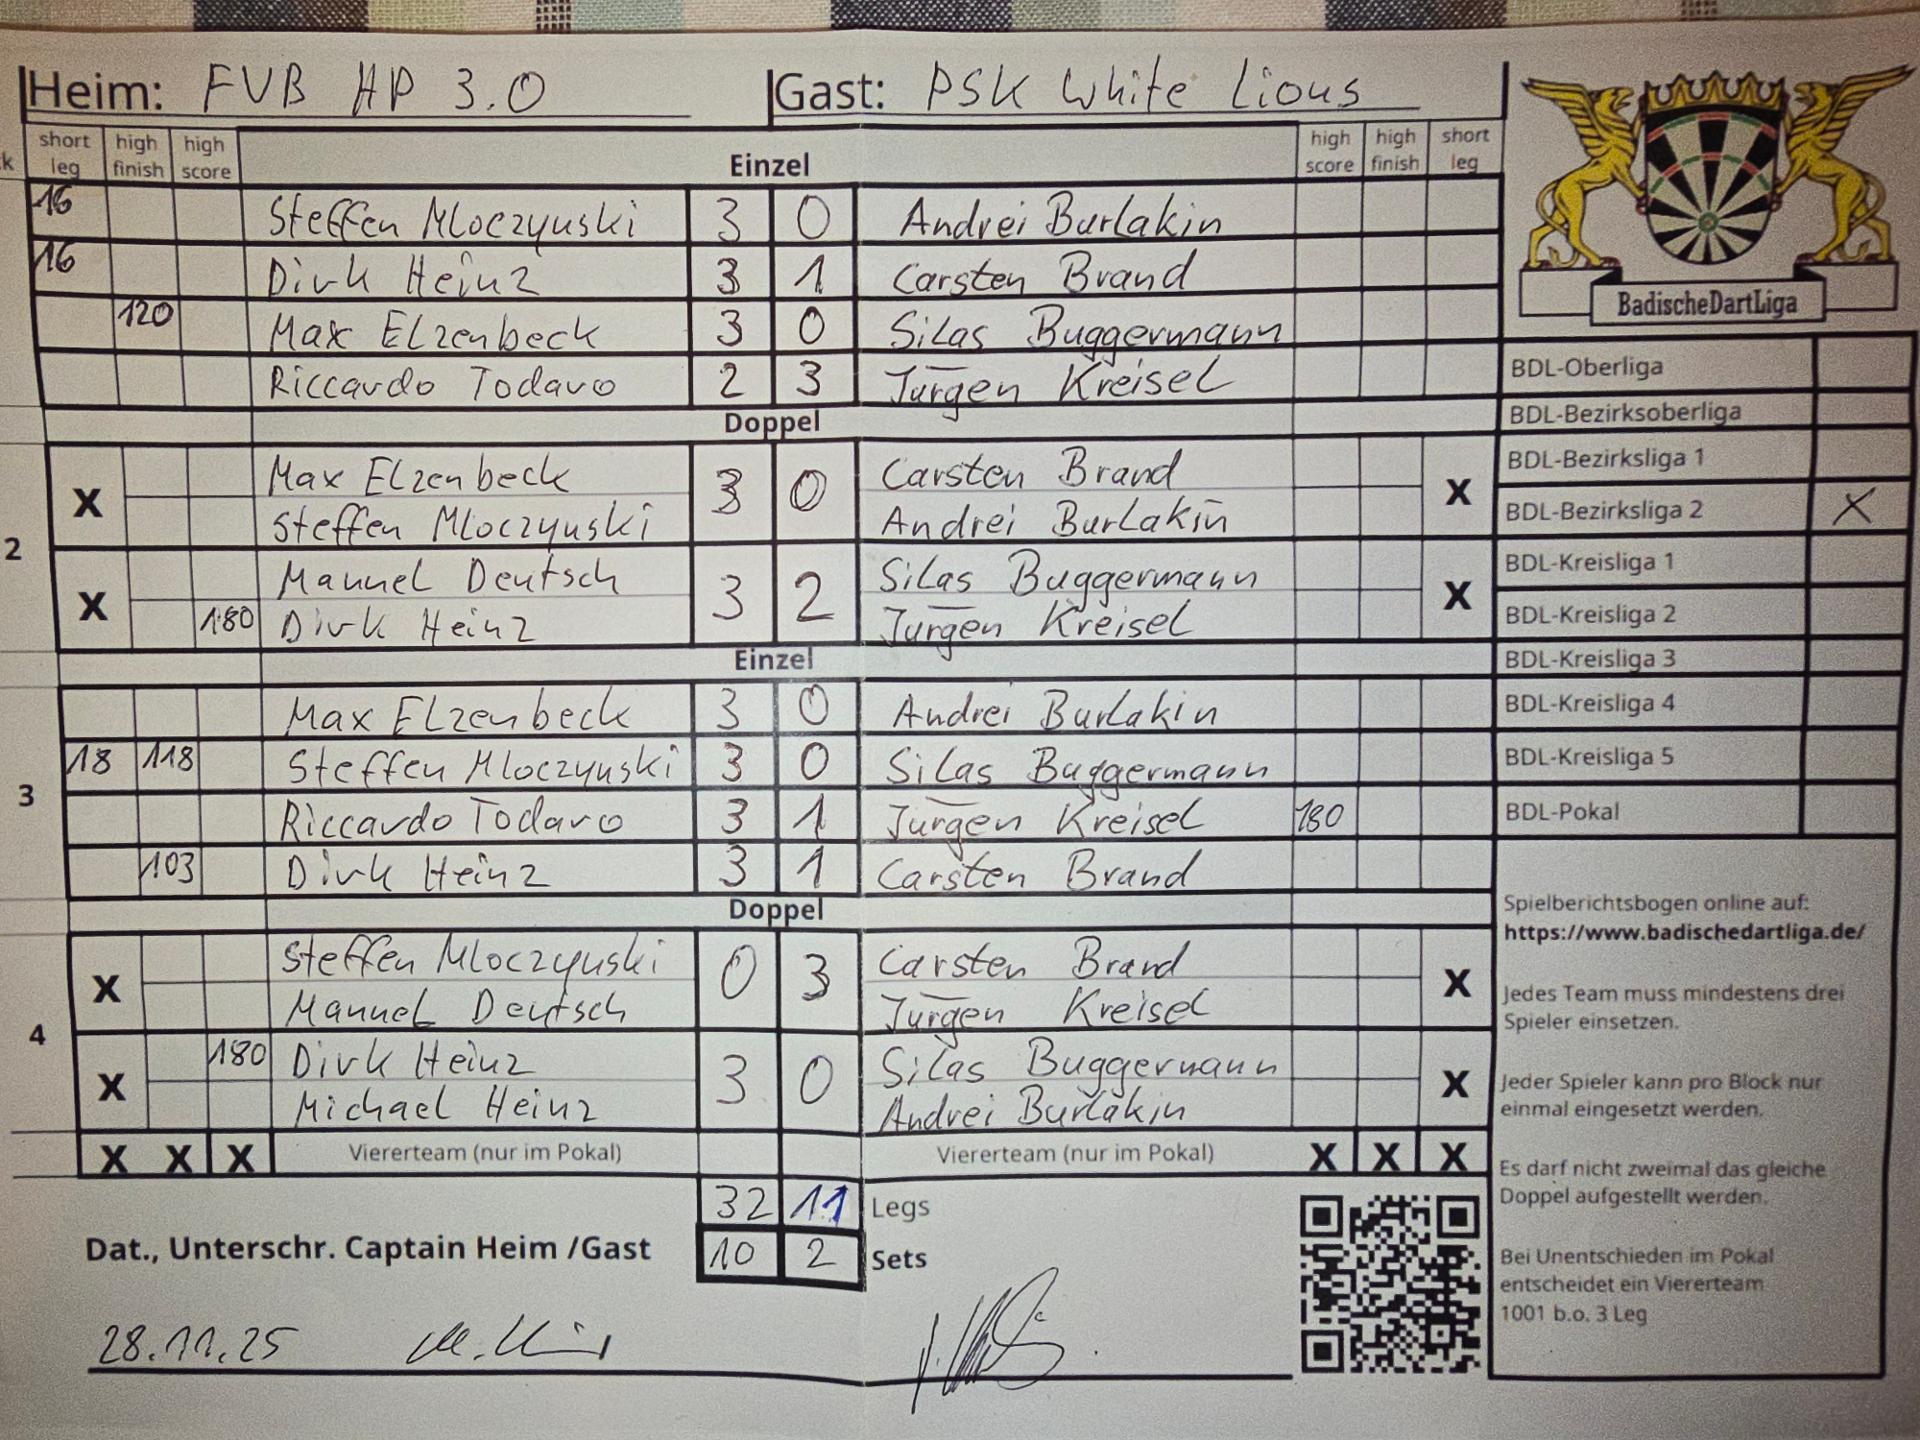 Heim: FVB HP 3.0 Gast: PSK White Lions
k short leg high finish high score Einzel high score high finish short leg
16 Steffen Mloczynski 3 0 Andrei Burlakin
16 Dirk Heinz 3 1 Carsten Brand
120 Max Elzenbeck 3 0 Silas Buggermann
Riccardo Todaro 2 3 Jürgen Kreisel
Doppel
2
X Max Elzenbeck 3 0 Carsten Brand X
Steffen Mloczynski Andrei Burlakin
X Manuel Deutsch 3 2 Silas Buggermann X
180 Dirk Heinz Jürgen Kreisel
Einzel
3
Max Elzenbeck 3 0 Andrei Burlakin
18 118 Steffen Mloczynski 3 0 Silas Buggermann
Riccardo Todaro 3 1 Jürgen Kreisel 180
103 Dirk Heinz 3 1 Carsten Brand
Doppel
4
X Steffen Mloczynski 0 3 Carsten Brand X
Manuel Deutsch Jürgen Kreisel
X 180 Dirk Heinz 3 0 Silas Buggermann X
Michael Heinz Andrei Burlakin
X X X Viererteam (nur im Pokal) Viererteam (nur im Pokal) X X X
32 11 Legs
Dat., Unterschr. Captain Heim /Gast 10 2 Sets
28.11.25
BadischeDartLiga
BDL-Oberliga
BDL-Bezirksoberliga
BDL-Bezirksliga 1
BDL-Bezirksliga 2 X
BDL-Kreisliga 1
BDL-Kreisliga 2
BDL-Kreisliga 3
BDL-Kreisliga 4
BDL-Kreisliga 5
BDL-Pokal
Spielberichtsbogen online auf:
https://www.badischedartliga.de/
Jedes Team muss mindestens drei
Spieler einsetzen.
Jeder Spieler kann pro Block nur
einmal eingesetzt werden.
Es darf nicht zweimal das gleiche
Doppel aufgestellt werden.
Bei Unentschieden im Pokal
entscheidet ein Viererteam
1001 b.o. 3 Leg